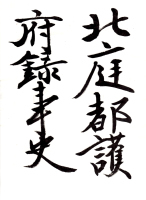 北庭都護
府錄事史